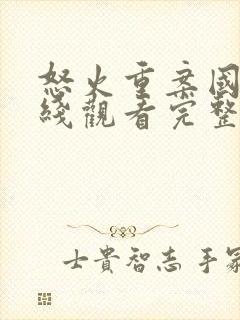 怒火重案國
綫觀看完整
士貴智志手冢